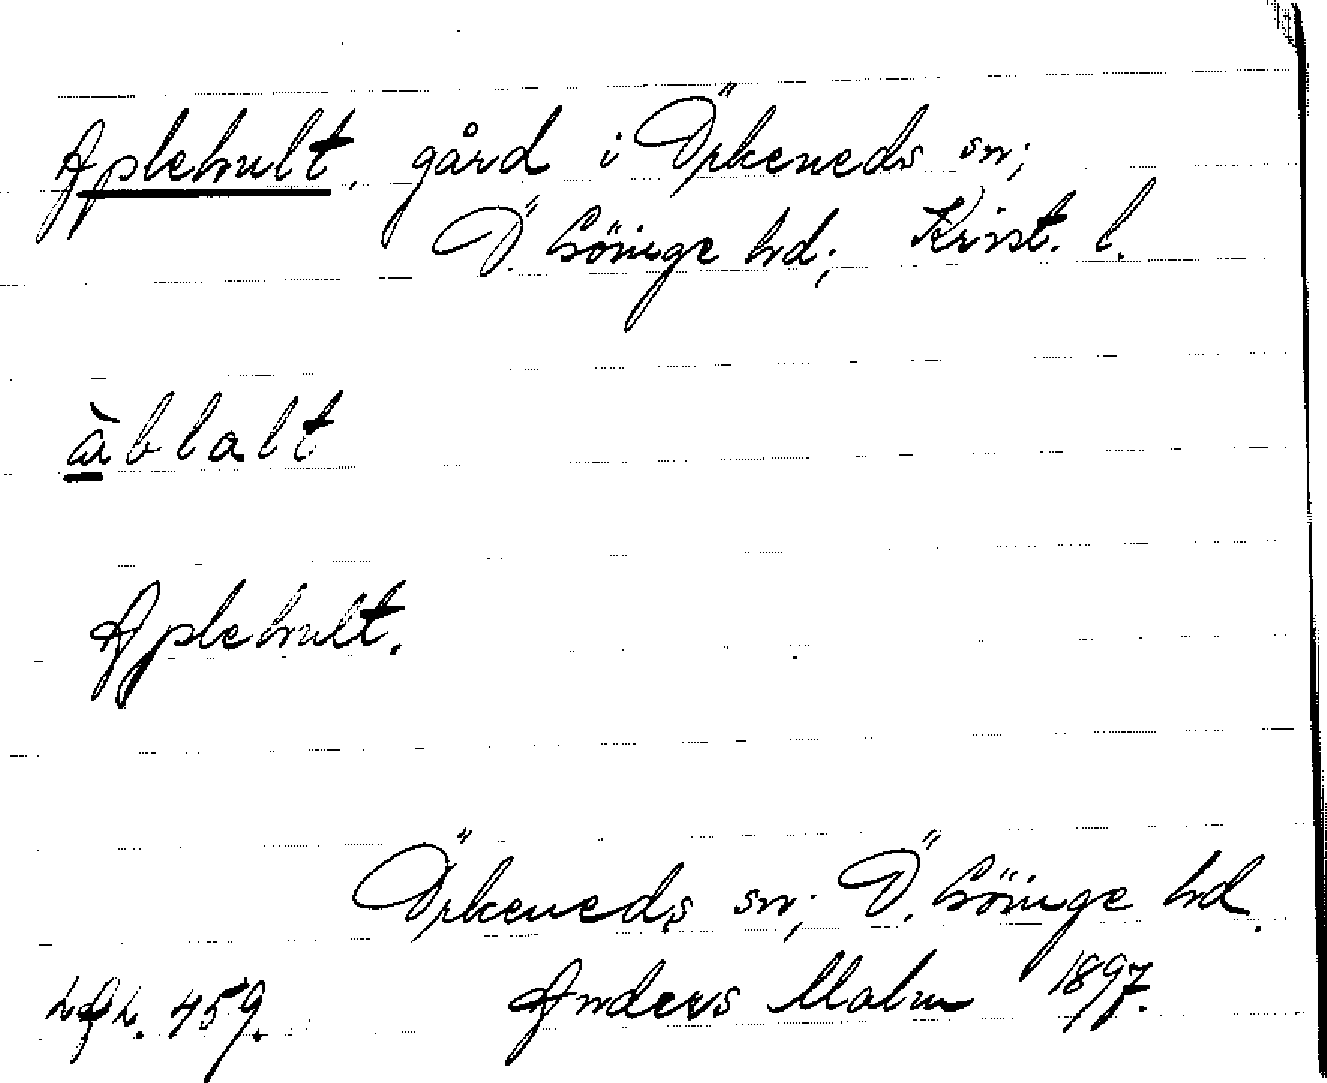 Aplehult, gård i Örkeneds sn;
Ö. Göinge hd; Krist. l.
àblalt
Aplehult.
Örkeneds sn; Ö. Göinge hd.
459. Anders Malm 1897.